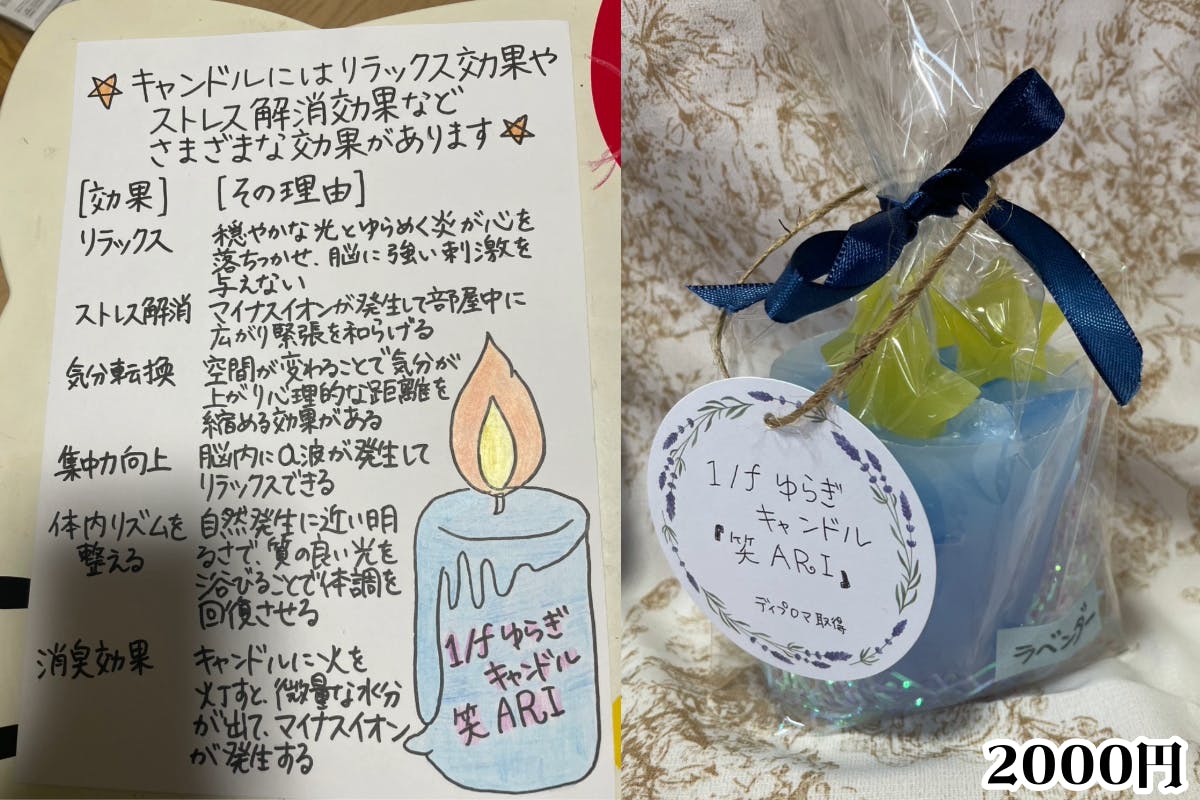 キャンドルにはリラックス効果や
ストレス解消効果など
さまざまな効果があります
[効果] [その理由]
リラックス 穏やかな光とゆらめく炎が心を
落ちつかせ、脳に強い刺激を
与えない
ストレス解消 マイナスイオンが発生して部屋中に
広がり緊張を和らげる
気分転換 空間が変わることで気分が
上がり心理的な距離を
縮める効果がある
集中力向上 脳内にα波が発生して
リラックスできる
体内リズムを 自然発生に近い明
整える るさで、質の良い光を
浴びることで体調を
回復させる
消臭効果 キャンドルに火を
灯すと、微量な水分
が出て、マイナスイオン
が発生する
1/fゆらぎ
キャンドル
笑ARI
1/f ゆらぎ
キャンドル
『笑ARI』
ディプロマ取得
ラベンダー
2000円